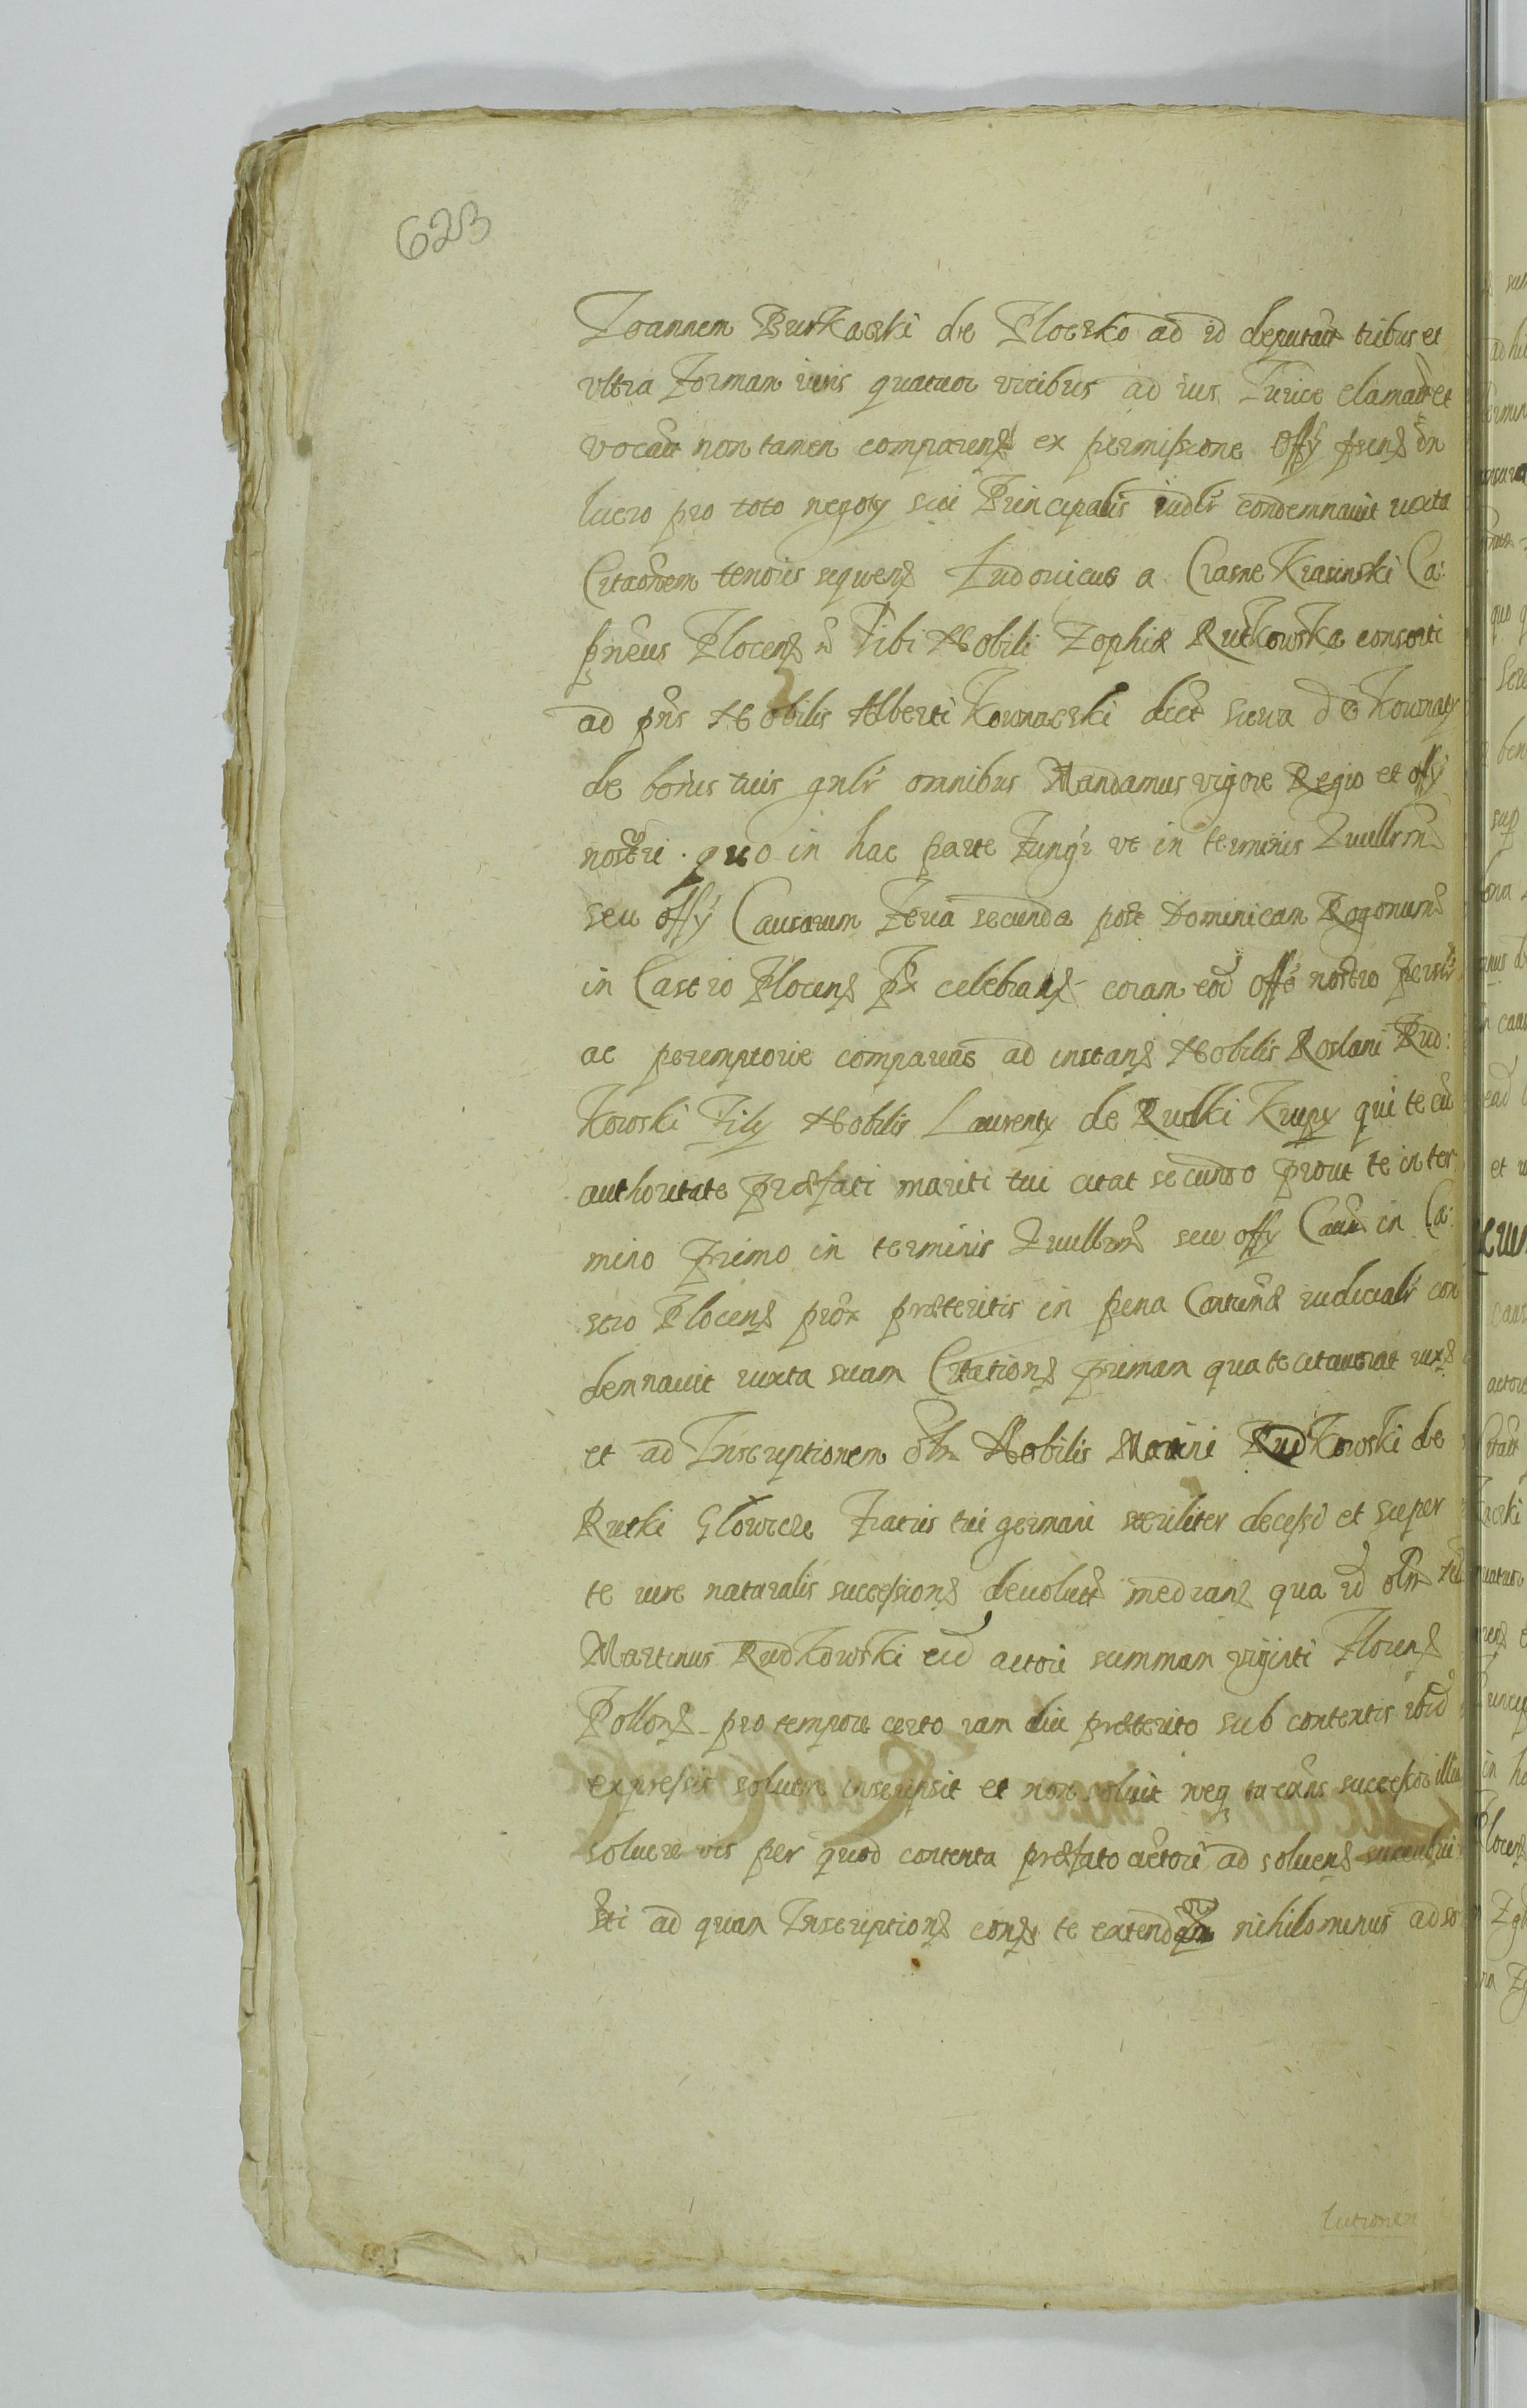 623
Joannem Burkacki de Ploczko ad id deputaũt tribus et
vltra formam iuris quatuor vicibus ad ius Iurice clamaũt et
vocaũt non tamen comparenȩ ex permissione Offy pñsenȩ in
lucro pro toto negoty sui Principalis iudlr condemnauit iuxta
Citaõnem tenoris sequenȩ Ludouicus a Crasne Krasinski Ca:
pneus Plocenȩ Tibi Nobili Zophiæ Rutkowska consorti
ad pñs Nobilis Alberti Kownaczki dict Siewa de Kownaty
de bonis tuis gnlr omnibus Mandamus vigore Regio et offy
nostri quo in hac parte fungr vt in terminis Quellrm
seu offy Causarum feria secunda post Dominicam Rogonum
in Castro Plocenȩ Px celebranȩ coram eod offo nostro perslr
ac peremptorie compareas ad instanȩ Nobilis Roslani Rud:
kowski Fily Nobilis Laurenty de Rudki Krupy qui te cũ
authoritate præfati mariti tui citat secundo prout te in ter
mino primo in terminis Quellrm seu offy Caũs in Ca:
stro Plocenȩ prox præteritis in pena Contumã iudicialr con
demnauit iuxta suam Citationȩ primam qua te citauerat iuxȩ
et ad Inscriptionem olm Nobilis Martini Rudkowski de
Rutki Glowicze Fratris tui germani steriliter decessi et super
te iure naturalis successionȩ deuolutȩ medianȩ qua id olm
Martinus Rudkowski eid actori summam viginti Florenȩ
Pollonȩ pro tempore certo iam diu præterito sub contentis ibid
expressis soluere inscripsit et non soluit neq tu eius successor illam
soluere vis per quod contenta præfato actori ad soluenȩ succubui
sti ad quam Inscriptionȩ consȩ te extendȩ nihilominus ad so
lutionem